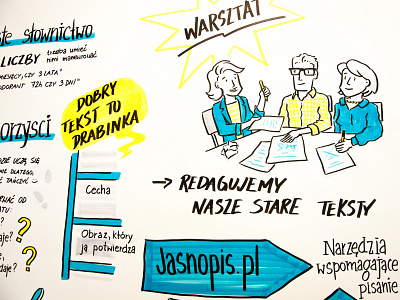 ste słownictwo
LICZBY
trzeba umieć
nimi manewrować
MIESIĘCY, CZY 3 LATA"
ODORANT 72H CZY 3 DNI"
WARSZTAT
DOBRY
TEKST TO
DRABINKA
orzyści
Cecha
Obraz, który
ją potwierdza
→ REDAGUJEMY
NASZE STARE TEKSTY
Jasnopis.pl
Narzędzia
wspomagające
pisanie